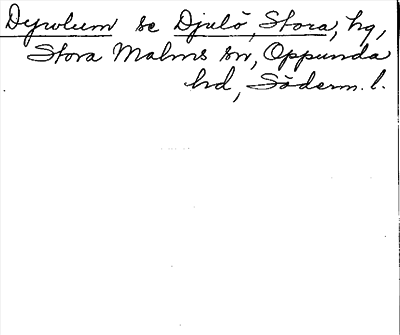 Dywlum se Djulö, Stora, hg,
Stora Malms sn, Oppunda
hd, Söderm. l.